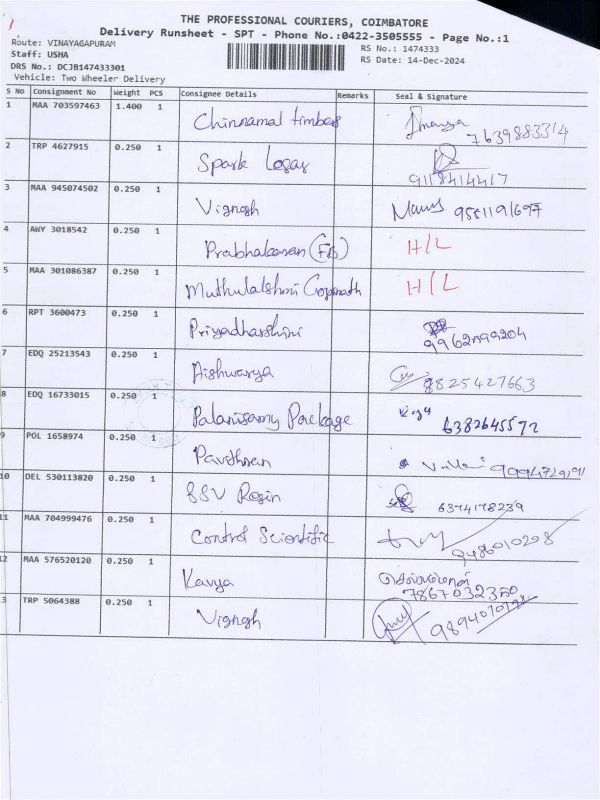 THE PROFESSIONAL COURIERS, COIMBATORE
Delivery Runsheet - SPT - Phone No.:0422-3505555 - Page No.:1
Route: VINAYAGAPURAM
RS No.: 1474333
Staff: USHA
RS Date: 14-Dec-2024
DRS No.: DCJB147433301
Vehicle: Two Wheeler Delivery
S No Consignment No Weight PCS Consignee Details Remarks Seal & Signature
1 MAA 703597463 1.400 1 Chinnamal timbers 7639883314
2 TRP 4627915 0.250 1 Spark Logar 9118414417
3 MAA 945074502 0.250 1 Vignesh
4 AWY 3018542 0.250 1 Prabhakaran H/L
5 MAA 301086387 0.250 1 H/L
6 RPT 3600473 0.250 1 Priyadharshini
7 EDQ 25213543 0.250 1 Aishwarya 8825427663
8 EDQ 16733015 0.250 1 Palanisamy Package 6382645572
9 POL 1658974 0.250 1 Pavithran
10 DEL 530113820 0.250 1 6374178239
11 MAA 704999476 0.250 1 Control Scientific 9486010298
12 MAA 576520120 0.250 1 Kavya 7867032350
3 TRP 5064388 0.250 1 Vignesh